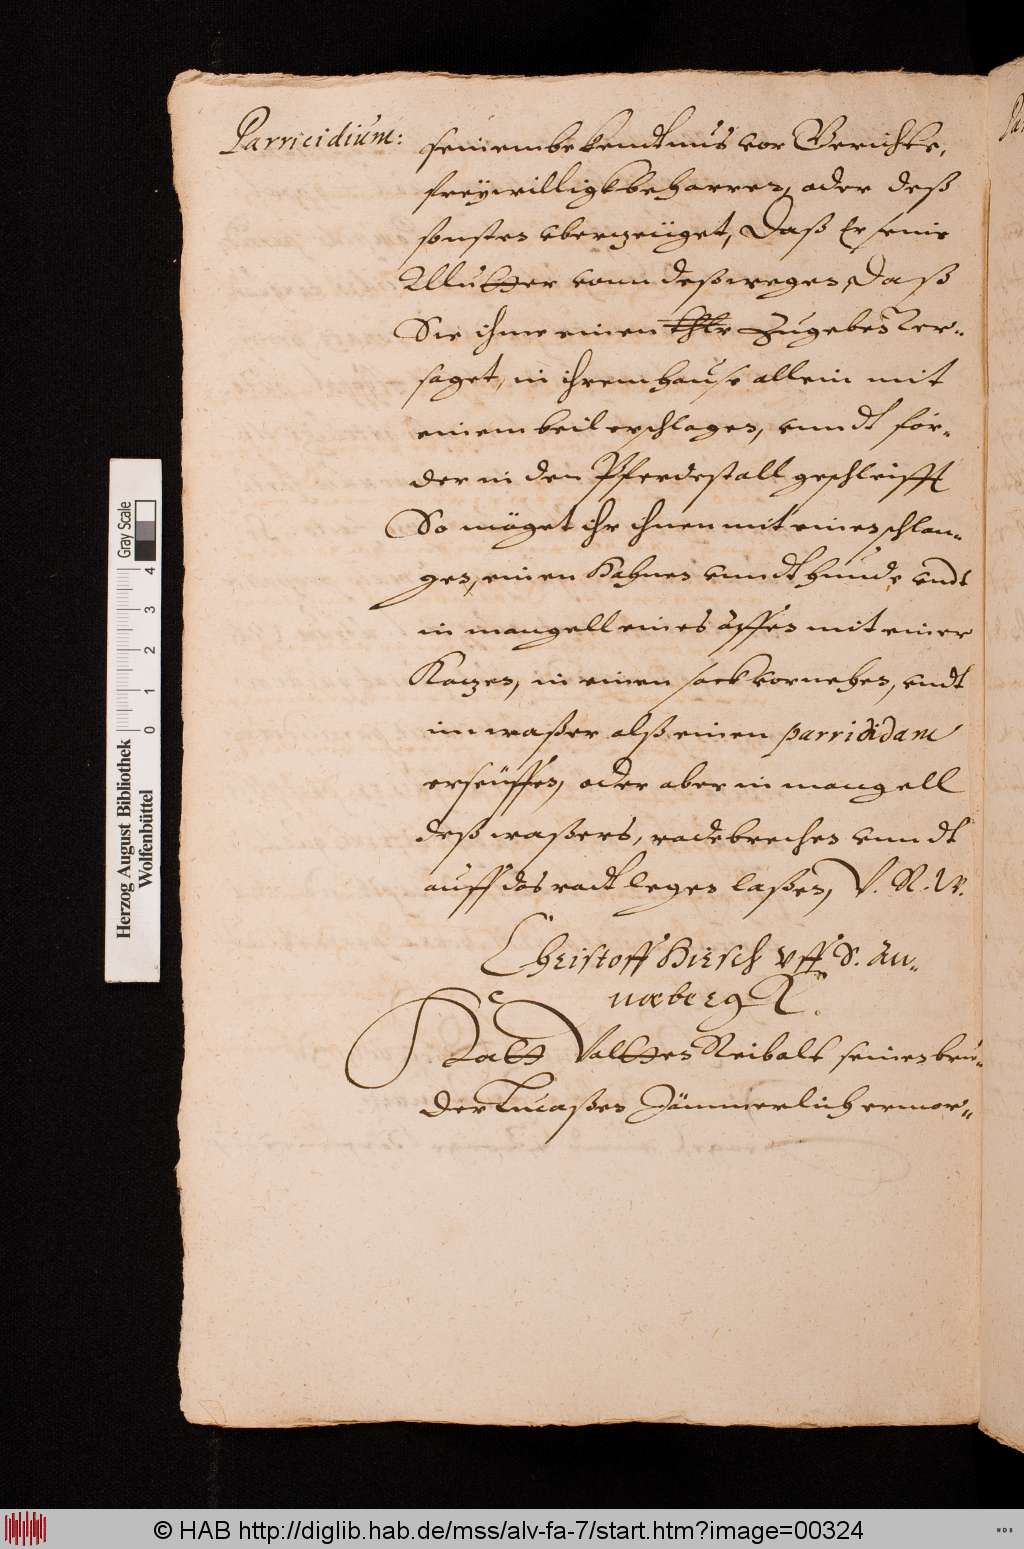 Parricidium:
seinem bekendtnus vor Gerichte,
freÿwilligk beharren, oder deß
sonsten vberzeüget, Daß Er seine
Mutter vmb deßwegen, Daß
Sie ihme einen thlr zugeben ver-
saget, in ihrem hause allein mit
einem beil erschlagen, vnndt för-
der in den Pferdestall geschleifft
So möget ihr ihnen mit einer schlan-
gen, einen Hahnen vnndt hunde vndt
in mangell eines affen mit einer
Katzen, in einen sack vornehen, vndt
im waßer alß einen parricidam
erseüffen, oder aber in mangell
deß waßers, radebrechen vnndt
auff das radt legen laßen, V. R. W.
Christoff Hirsch vff S. An-
næberg
Hatt Valtten Reibalt seinen bru-
der Lucaßen Jämmerlich ermor-
Gray Scale
0 1 2 3 4
Herzog August Bibliothek
Wolfenbüttel
© HAB http://diglib.hab.de/mss/alv-fa-7/start.htm?image=00324